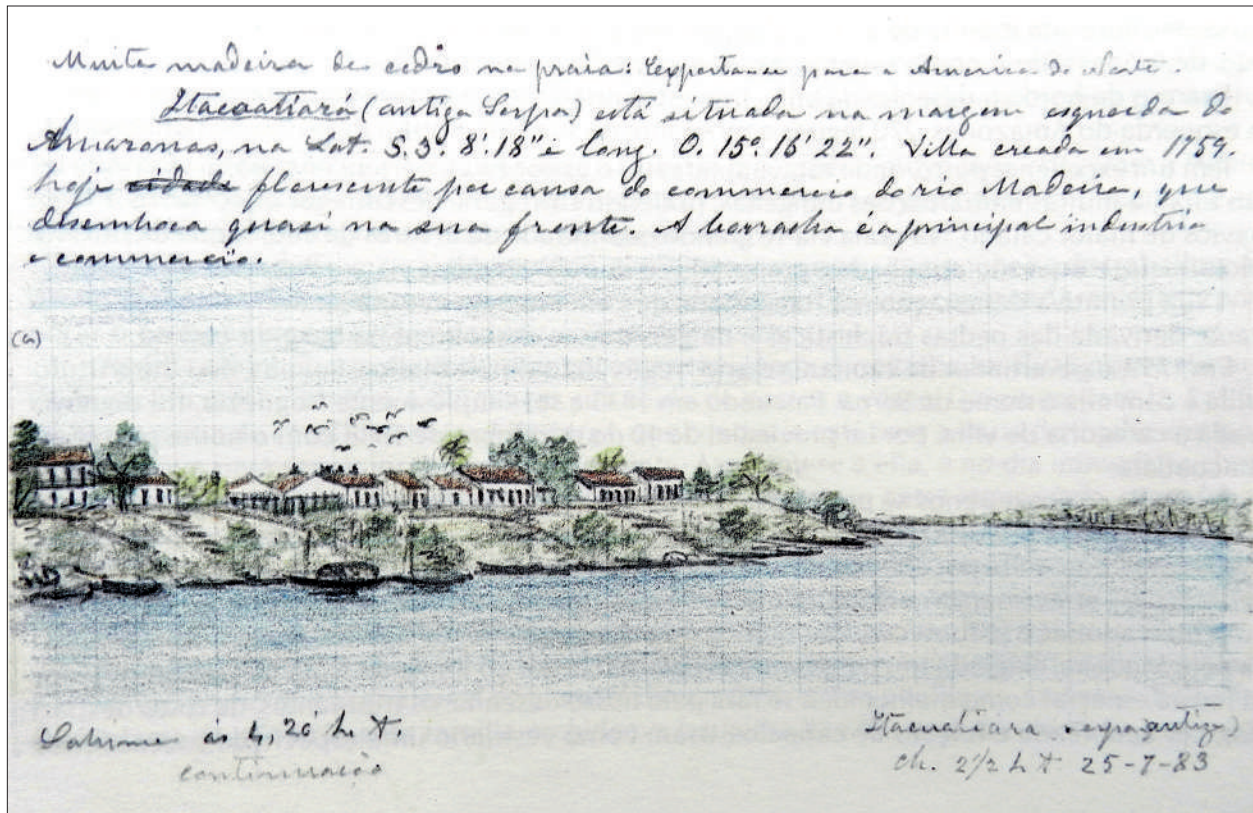 Muita madeira de cedro na praia: Exporta-se para a America do Norte.
Itacoatiará (antiga Serpa) está situada na margem esquerda do
Amazonas, na Lat. S. 3º. 8'. 18" e long. O. 15º. 16' 22". Villa creada em 1759.
hoje cidade florescente por causa do commercio do rio Madeira, que
desemboca quasi na sua frente. A borracha é a principal industria
e commercio.
(a)
Sahimos ás 4,20 h t.
continuação
Itacuatiara antiga)
ch. 2 1/2 h t 25-7-83